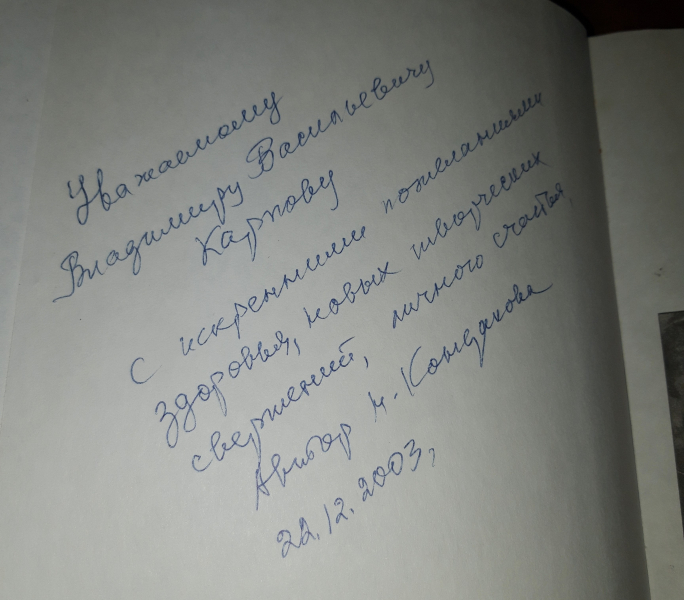 Уважаемому
Владимиру Васильевичу
Карпову
С искренними пожеланиями
здоровья, новых творческих
свершений, личного счастья,
Автор Н. Кондакова
22.12.2003,